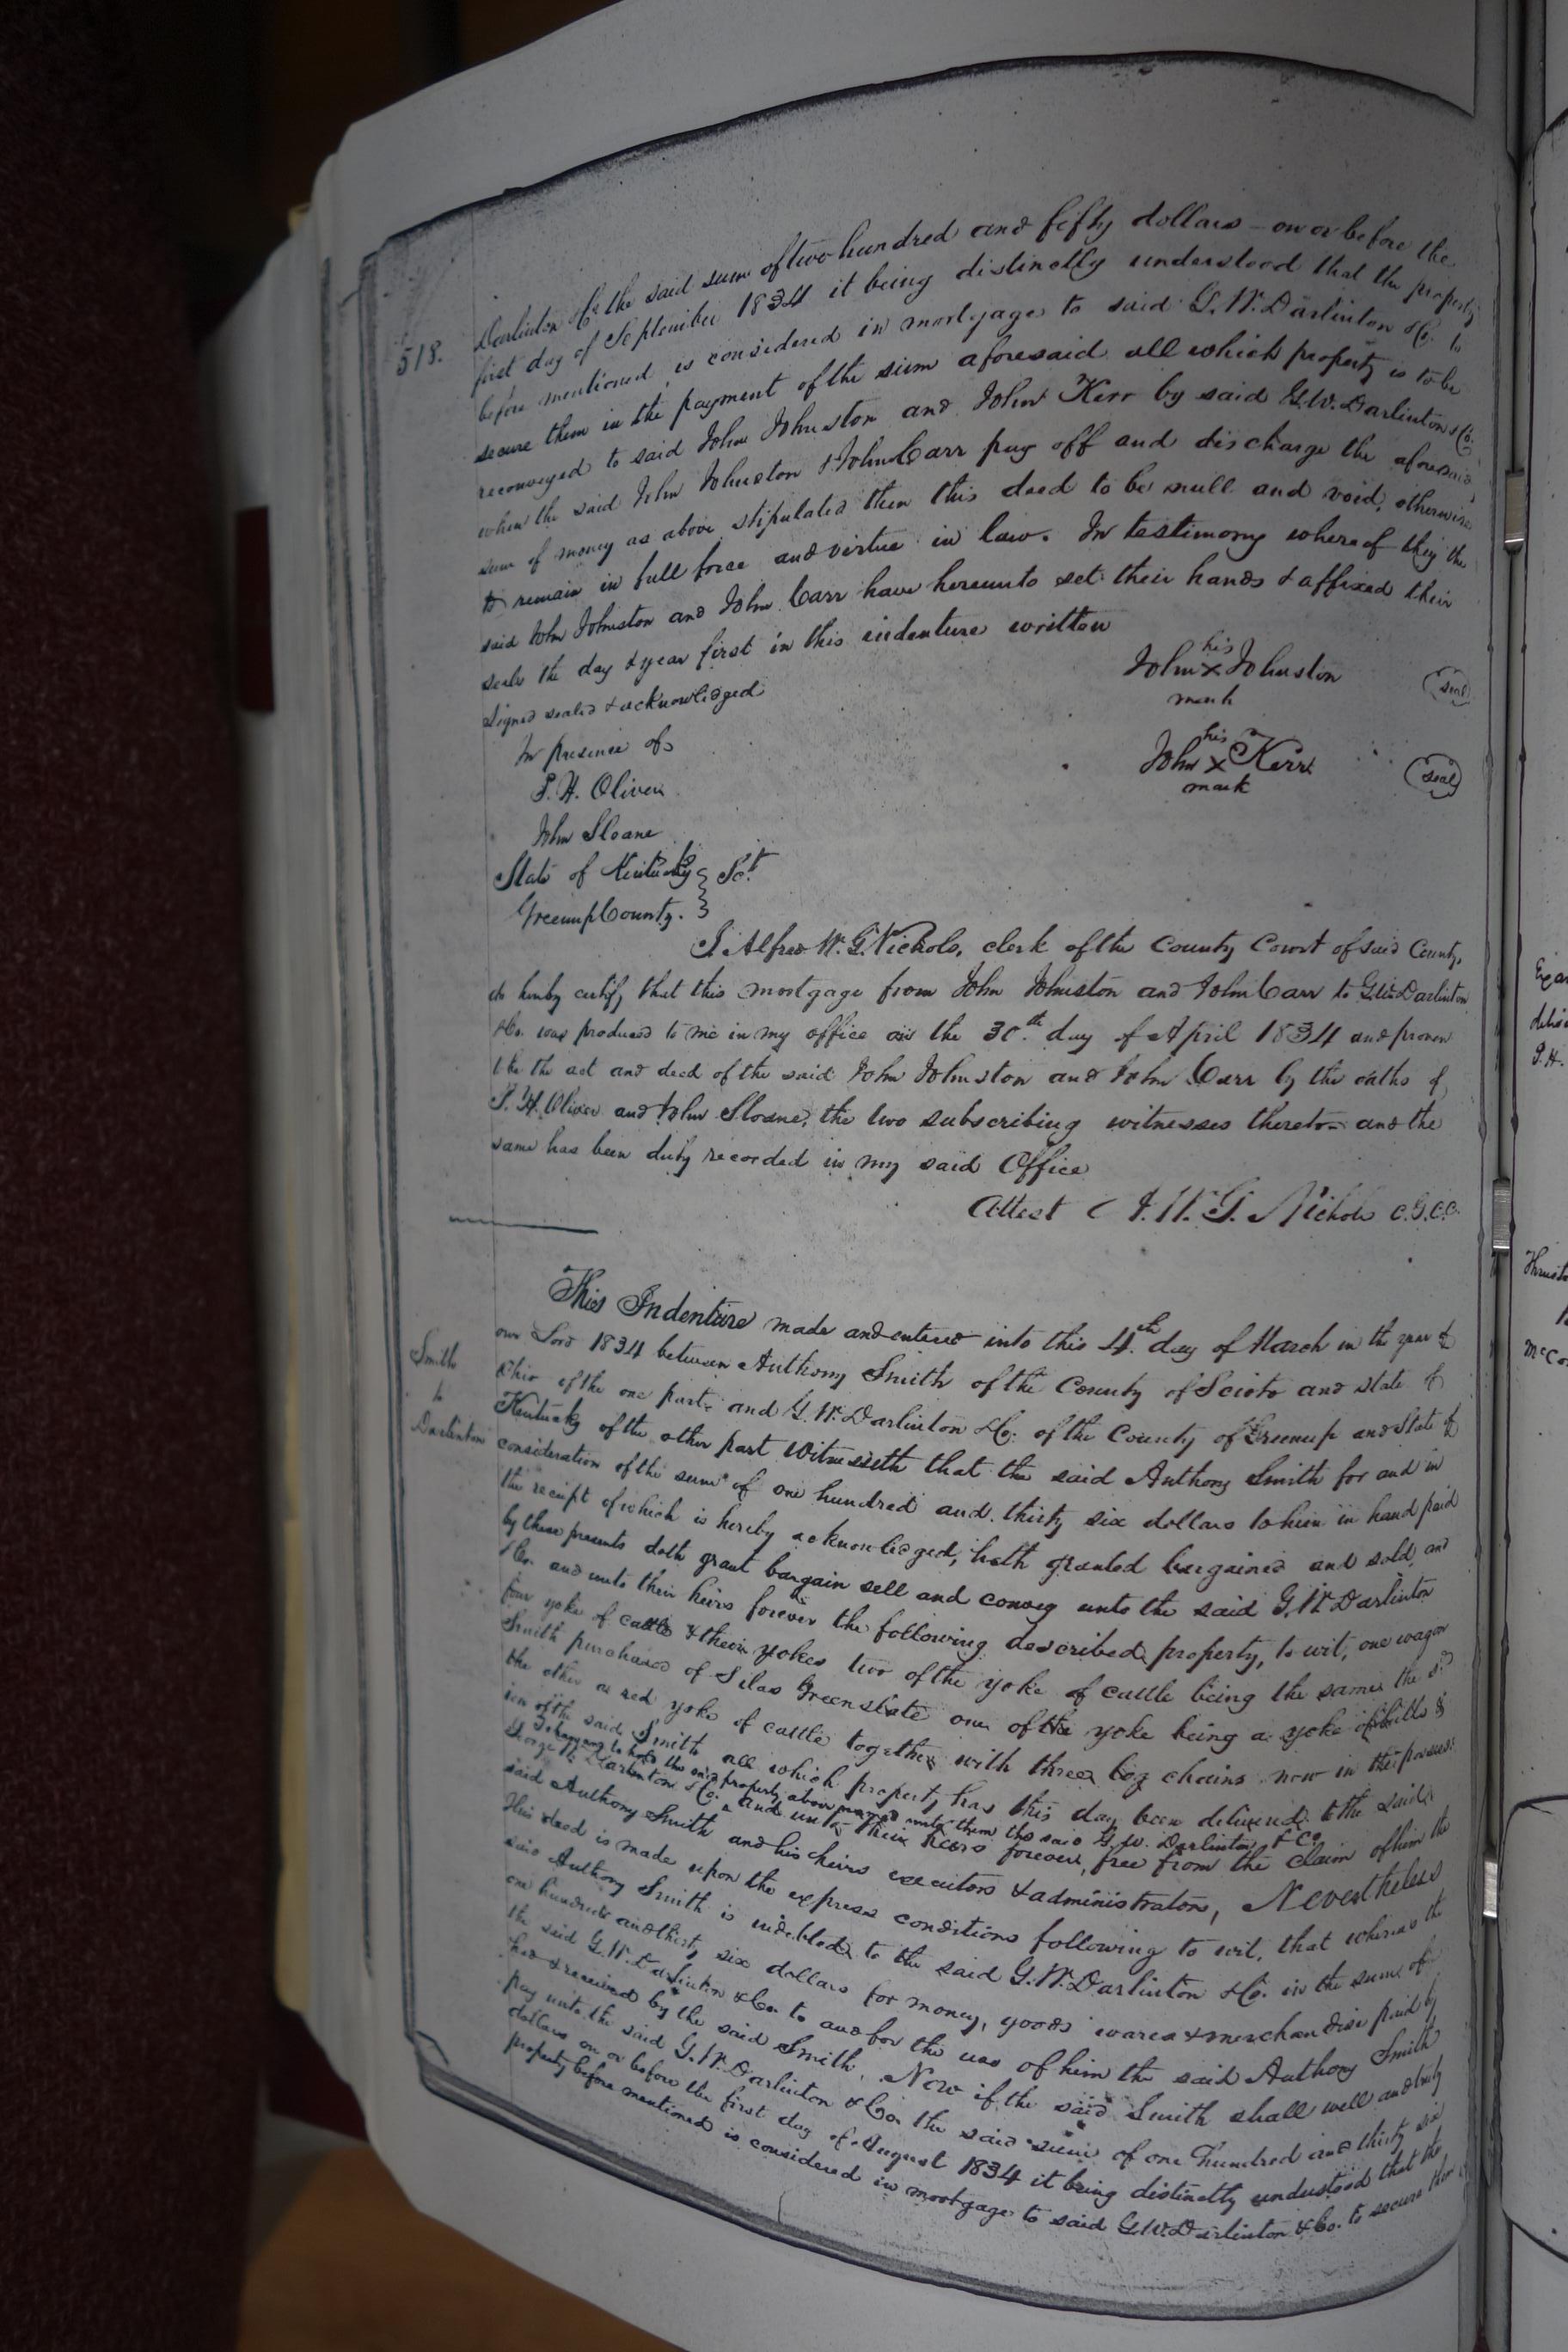 518.
Darlinton &Co. the said sum of two hundred and fifty dollars – on or before the
first day of September 1834 it being distinctly understood that the property
before mentioned is considered in mortgage to said G. W. Darlinton &Co. to
secure them in the payment of the sum aforesaid all which property is to be
reconveyed to said John Johnston and John Kerr by said G. W. Darlinton &Co.
when the said John Johnston & John Carr pay off and discharge the aforesaid
sum of money as above stipulated then this deed to be null and void, otherwise
to remain in full force and virtue in law. In testimony whereof they the
said John Johnston and John Carr have hereunto set their hands & affixed their
seals the day & year first in this indenture written
Signed sealed & acknowledged
In presence of
John his X mark Johnston (seal)
John his X mark Kerr (seal)
H. Oliver
John Sloane
State of Kentucky } Sct.
Greenup County. }
I Alfred W. G. Nichols, clerk of the County Court of said County,
do hereby certify that this mortgage from John Johnston and John Carr to G. W. Darlinton
&Co. was produced to me in my office on the 30th. day of April 1834 and proven
to be the act and deed of the said John Johnston and John Carr by the oaths of
H. Oliver and John Sloane, the two subscribing witnesses thereto – and the
same has been duly recorded in my said Office
Attest A. W. G. Nichols C.G.C.C.
Smith
to
Darlinton
This Indenture made and entered into this 4th. day of March in the year of
our Lord 1834 between Anthony Smith of the County of Scioto and state of
Ohio of the one part – and G. W. Darlinton &Co. of the County of Greenup and State of
Kentucky of the other part Witnesseth that the said Anthony Smith for and in
consideration of the sum of one hundred and thirty six dollars to him in hand paid
the receipt of which is hereby acknowledged, hath granted bargained and sold, and
by these presents doth grant bargain sell and convey unto the said G. W. Darlinton
&Co. and unto their heirs forever the following described property, to wit, one wagon
four yoke of cattle & their yokes two of the yoke of cattle being the same the sd
Smith purchased of Silas Greenslate one of the yoke being a yoke of bulls &
the other a red yoke of cattle together with three log chains now in the possess-
ion of the said Smith all which property has this day been delivered to the said
To have and to hold the said property above named unto them the said G. W. Darlinton & Co
George W. Darlinton &Co. ^ and unto their heirs forever, free from the claim of him the
said Anthony Smith and his heirs executors & administrators, Nevertheless
this deed is made upon the express conditions following to wit, that whereas the
said Anthony Smith is indebted to the said G. W. Darlinton &Co. in the sum of
one hundred and thirty six dollars for money, goods wares & merchandise paid by
the said G. W. Darlinton &Co. to and for the use of him the said Anthony Smith
had & received by the said Smith. Now if the said Smith shall well and truly
pay unto the said G. W. Darlinton &Co. the said sum of one hundred and thirty six
dollars on or before the first day of August 1834 it being distinctly understood that the
property before mentioned is considered in mortgage to said G. W. Darlinton &Co. to secure